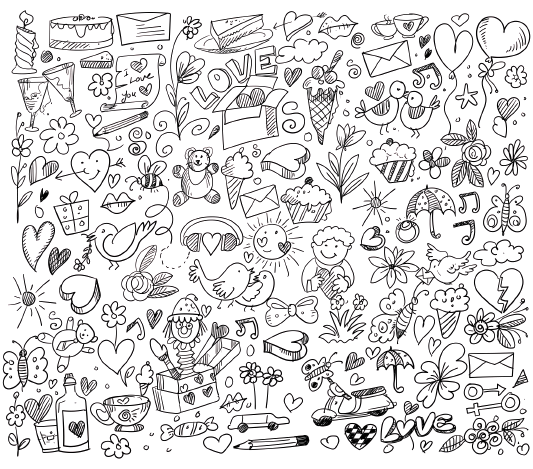 I
Love
you
LOVE
S
LOVE